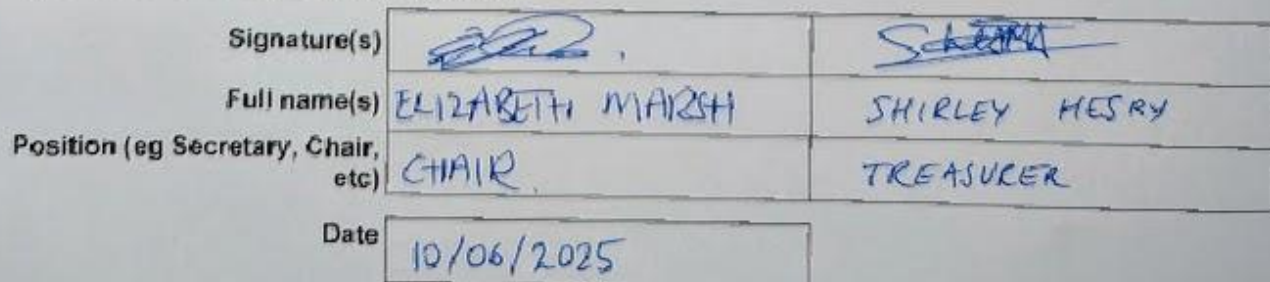 Signature(s)
Full name(s) ELIZABETH MARSH SHIRLEY HESRY
Position (eg Secretary, Chair,
etc) CHAIR TREASURER
Date 10/06/2025